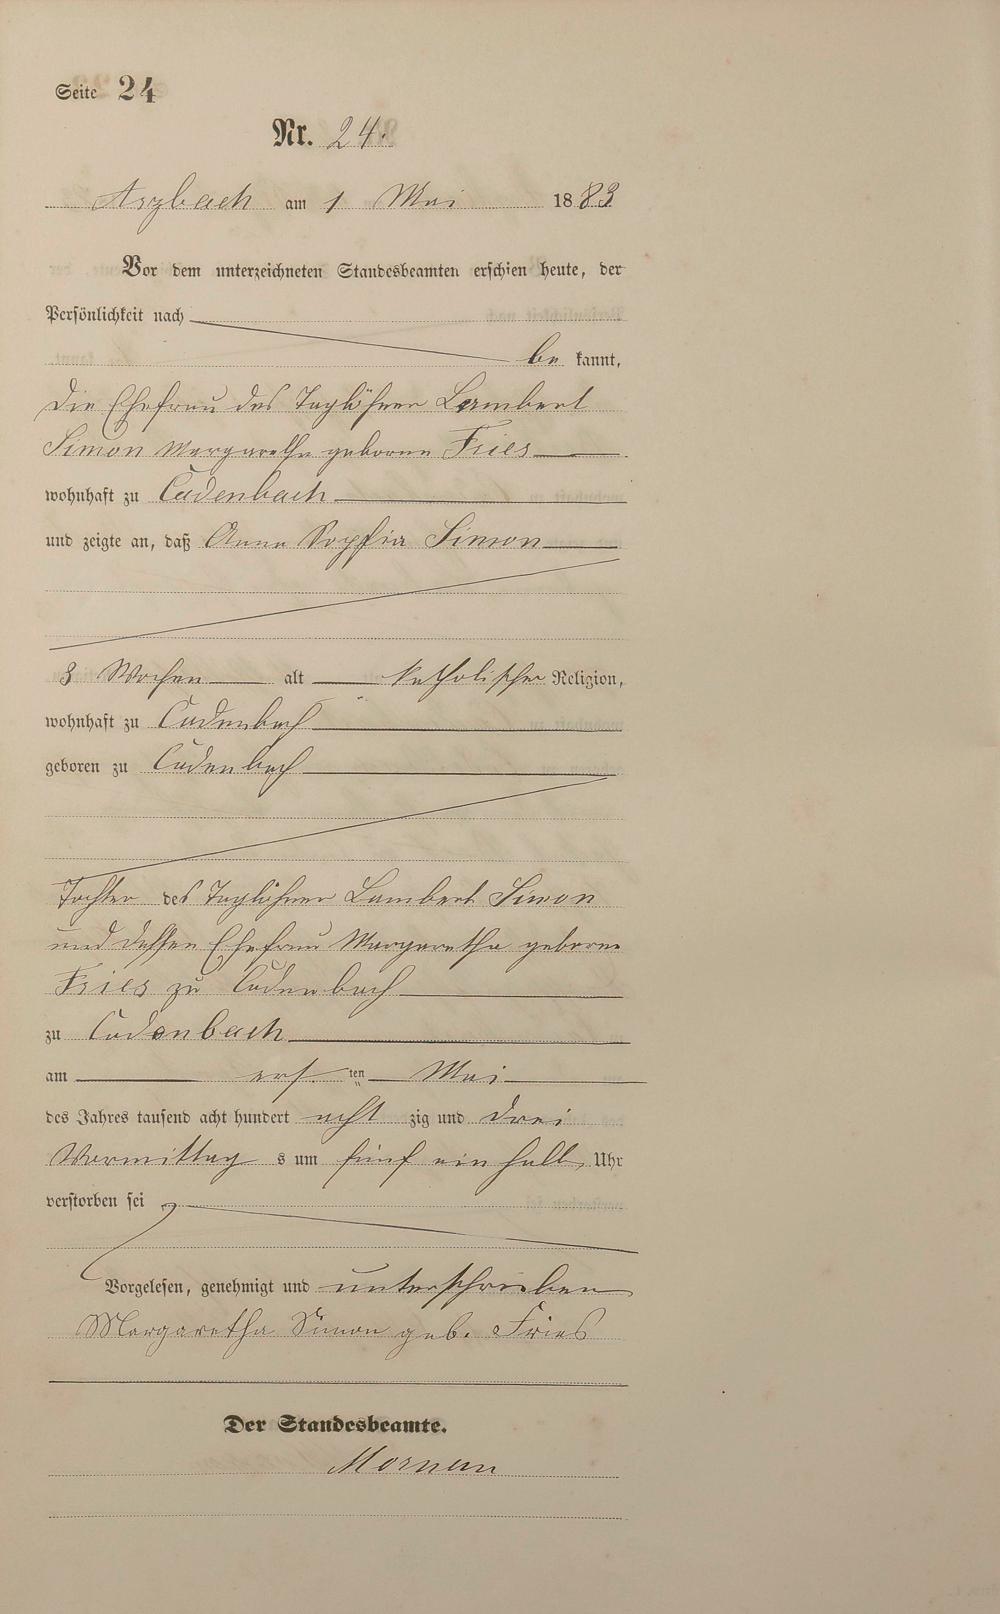 Seite 24
Nr. 24.
Arzbach am 1 Mai 1883
Vor dem unterzeichneten Standesbeamten erschien heute, der
Persönlichkeit nach
be kannt,
die Ehefrau des Taglöhner Lambert
Simon Margaretha geborene Fries
wohnhaft zu Cadenbach
und zeigte an, daß Anna Sophia Simon
3 Wochen alt katholischer Religion,
wohnhaft zu Cadenbach
geboren zu Cadenbach
Tochter des Taglöhner Lambert Simon
und dessen Ehefrau Margaretha geborne
Fries zu Cadenbach
zu Cadenbach
am ers ten Mai
des Jahres tausend acht hundert acht zig und drei
Vormittag s um fünf ein halb Uhr
verstorben sei
Vorgelesen, genehmigt und unterschrieben
Margaretha Simon geb. Fries
Der Standesbeamte.